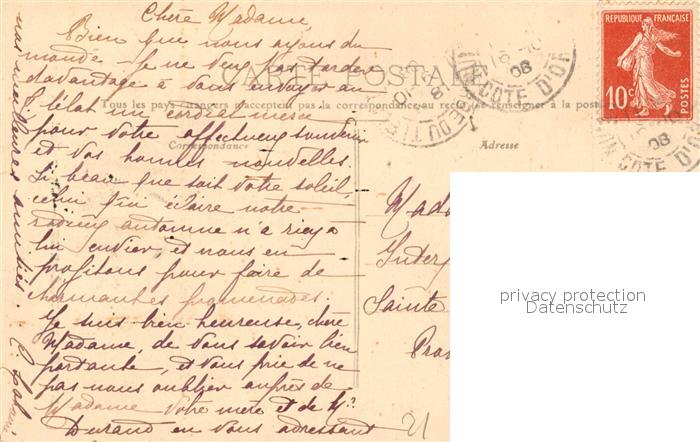 Chère Madame
Bien que nous ayons du
monde je ne veux pas tarder
davantage à vous envoyer
un cordial merci
pour votre affectueux souvenir
et vos bonnes nouvelles.
Si beau que soit votre soleil,
celui qui éclaire notre
radieux automne n'a rien à
lui envier et nous en
profitons pour faire de
charmantes promenades.
Je suis bien heureuse, chère
Madame, de vous savoir bien
portante, et vous prie de ne
pas nous oublier auprès de
Madame votre mère et de Mr
Durand en vous adressant
nos meilleures amitiés.
CARTE POSTALE
Tous les pays étrangers n'acceptent pas la correspondance au recto (se renseigner à la poste
Correspondance
Adresse
REPUBLIQUE FRANÇAISE
10c
POSTES
16-10
08
CÔTE D'OR
08
CÔTE D'OR
Sainte
21
privacy protection
Datenschutz